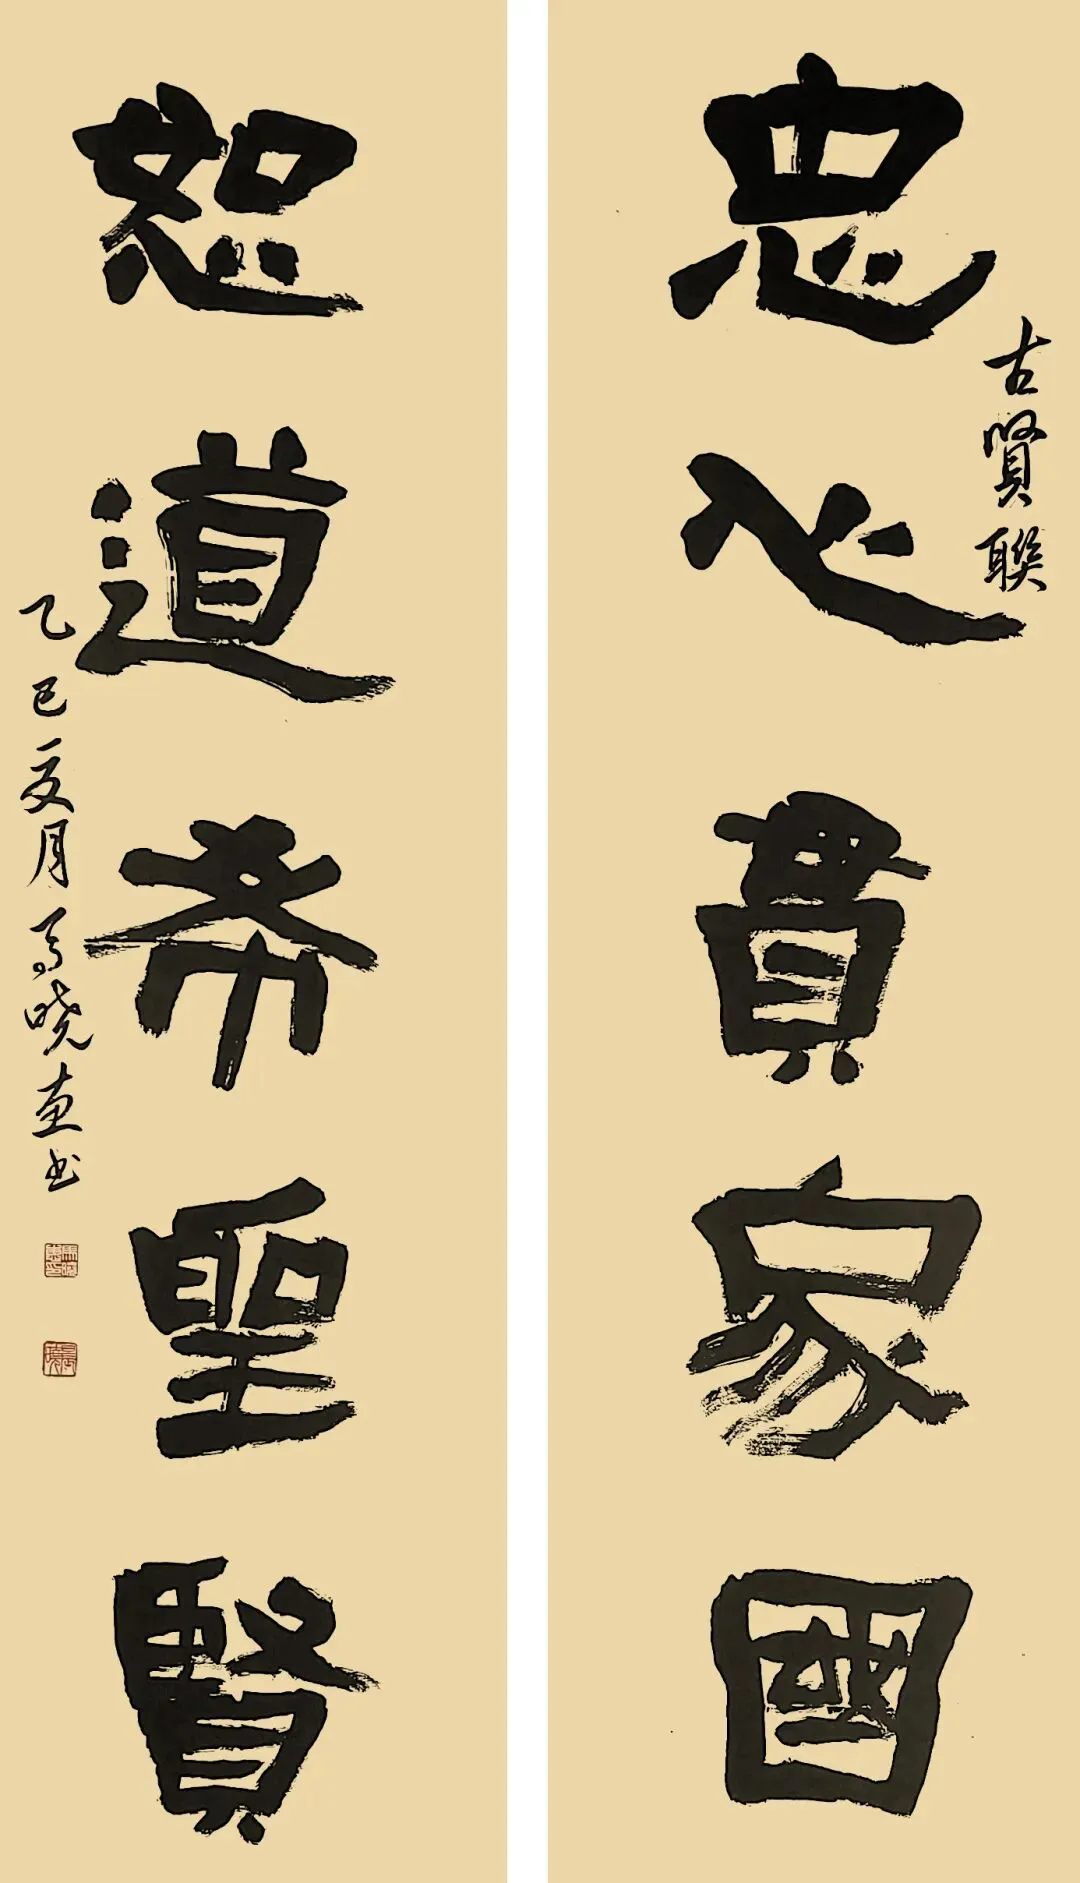 忠心貫家國
古賢聯
恕道希聖賢
乙巳夏月馬曉惠书